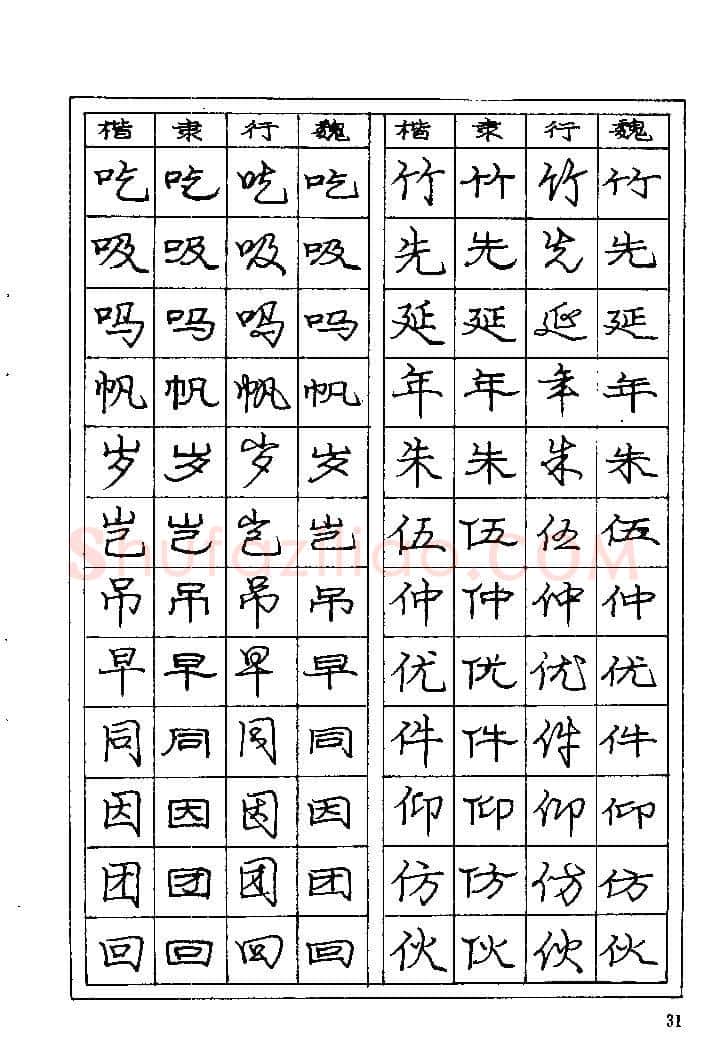 楷 隶 行 魏 楷 隶 行 魏
吃 吃 吃 吃 竹 竹 竹 竹
吸 吸 吸 吸 先 先 先 先
吗 吗 吗 吗 延 延 延 延
帆 帆 帆 帆 年 年 年 年
岁 岁 岁 岁 朱 朱 朱 朱
岂 岂 岂 岂 伍 伍 伍 伍
吊 吊 吊 吊 仲 仲 仲 仲
早 早 早 早 优 优 优 优
同 同 同 同 件 件 件 件
因 因 因 因 仰 仰 仰 仰
团 团 团 团 仿 仿 仿 仿
回 回 回 回 伙 伙 伙 伙
Shufaziliao.COM
31